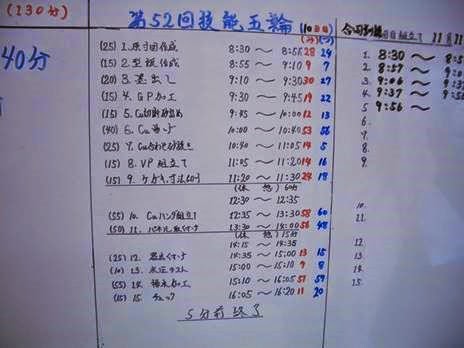 (130分)
40分
第52回技能五輪 (10日目)
(分) (分)
(25) 1. 原寸図作成 8:30 ～ 8:55 28 24
(15) 2. 型板作成 8:55 ～ 9:10 9 7
(20) 3. 墨出し 9:10 ～ 9:30 30 27
(15) 4. GP加工 9:30 ～ 9:45 19 22
(15) 5. Cu切断 9:45 ～ 10:00 12 13
(40) 6. Cu曲ゲ 10:00 ～ 10:40 53 56
(25) 7. Cu 10:40 ～ 11:05 14 5
(15) 8. VP組立て 11:05 ～ 11:20 14 16
(15) 9. ケガキ寸法 11:20 ～ 11:30 24 18
(休憩) 60分
12:30 ～ 12:35
(55) 10. Cuハンダ組立て 12:35 ～ 13:30 58 60
(50) 11. パネル 13:30 ～ 14:00 56 48
(休憩) 15分
14:15 ～ 14:35
(25) 12. 14:35 ～ 15:00 13 15
(10) 13. 水圧テスト 15:00 ～ 15:10 9 8
(55) 14. 15:10 ～ 16:05 57 59
(15) 15. チェック 16:05 ～ 16:20 11 20
5分前終了
今回 組立て 11月
1. 8:30 ～
2. 8:57 ～
3. 9:06 ～
4. 9:37 ～
5. 9:56 ～
6.
7.
8.
9.
10.
11.
12.
13.
14.
15.